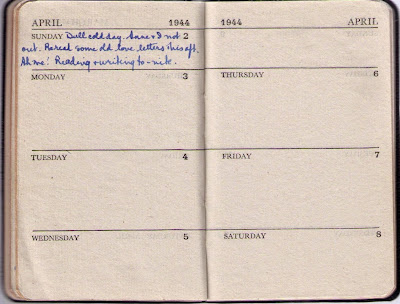 APRIL 1944
SUNDAY Dull cold day. Anne & I not 2
out. Reread some old love letters this aft.
Ah me! Reading & writing to-nite.
MONDAY 3
TUESDAY 4
WEDNESDAY 5
1944 APRIL
THURSDAY 6
FRIDAY 7
SATURDAY 8